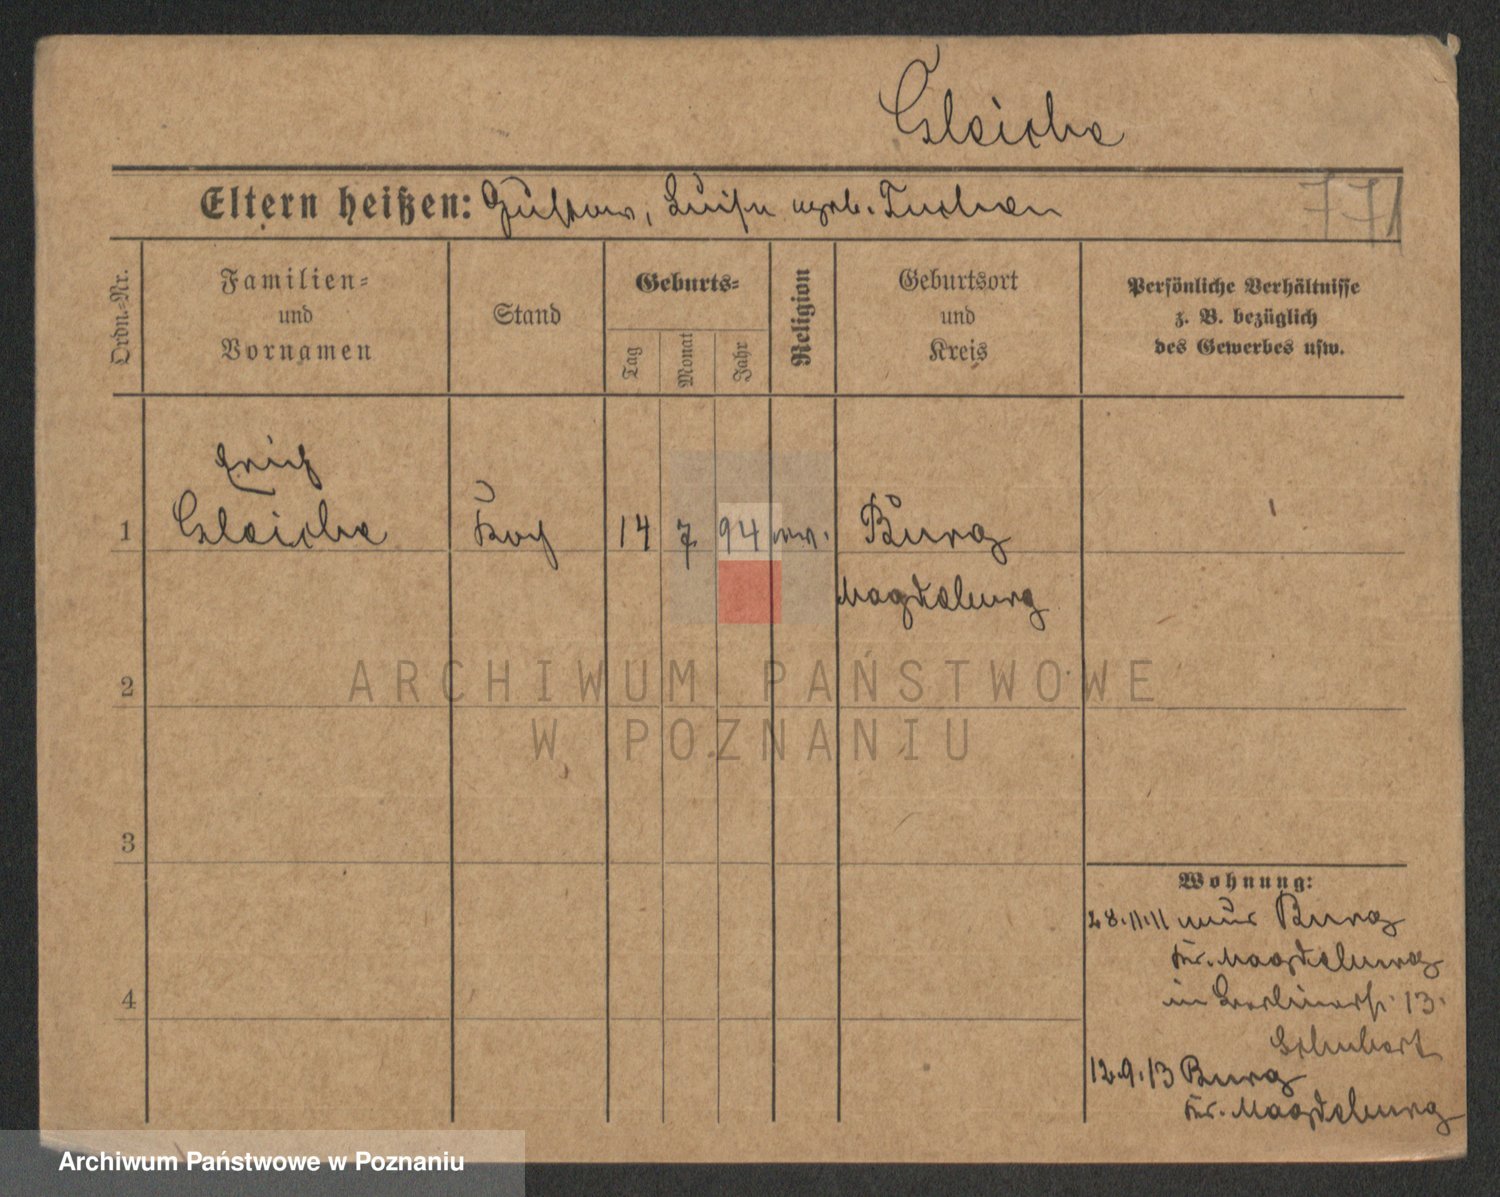 Gleiche
Eltern heißen: Gustav, Luise geb.
771
Ordn.-Nr.
Familien-
und
Vornamen
Stand
Geburts-
Tag
Monat
Jahr
Religion
Geburtsort
und
Kreis
Persönliche Verhältnisse
z. B. bezüglich
des Gewerbes usw.
Erich
1 Gleiche Koch 14 7 94 ev. Burg
Magdeburg
2
ARCHIWUM PAŃSTWOWE
W POZNANIU
3
Wohnung:
28.11.11 aus Burg
Kr. Magdeburg
in Berlinerstr. 13.
Schubert
4
12.9.13 Burg
Kr. Magdeburg
Archiwum Państwowe w Poznaniu